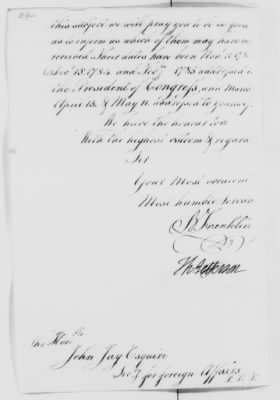 this subject we will pray you to be so good
as to inform us which of them may have been
received. Their dates have been Nov. 11. 178
Dec. 15. 1784. and Feb. 1785 addressed to
the President of Congress, and March
April 13. & May 11. addressed to yourself
We have the honour to be
With the highest esteem & regard
Sir
Your Most obedient
Most humble servan
B. Franklin
Th: Jefferson
The Hon. ble
John Jay Esquire
Sec. y for foreign Affairs